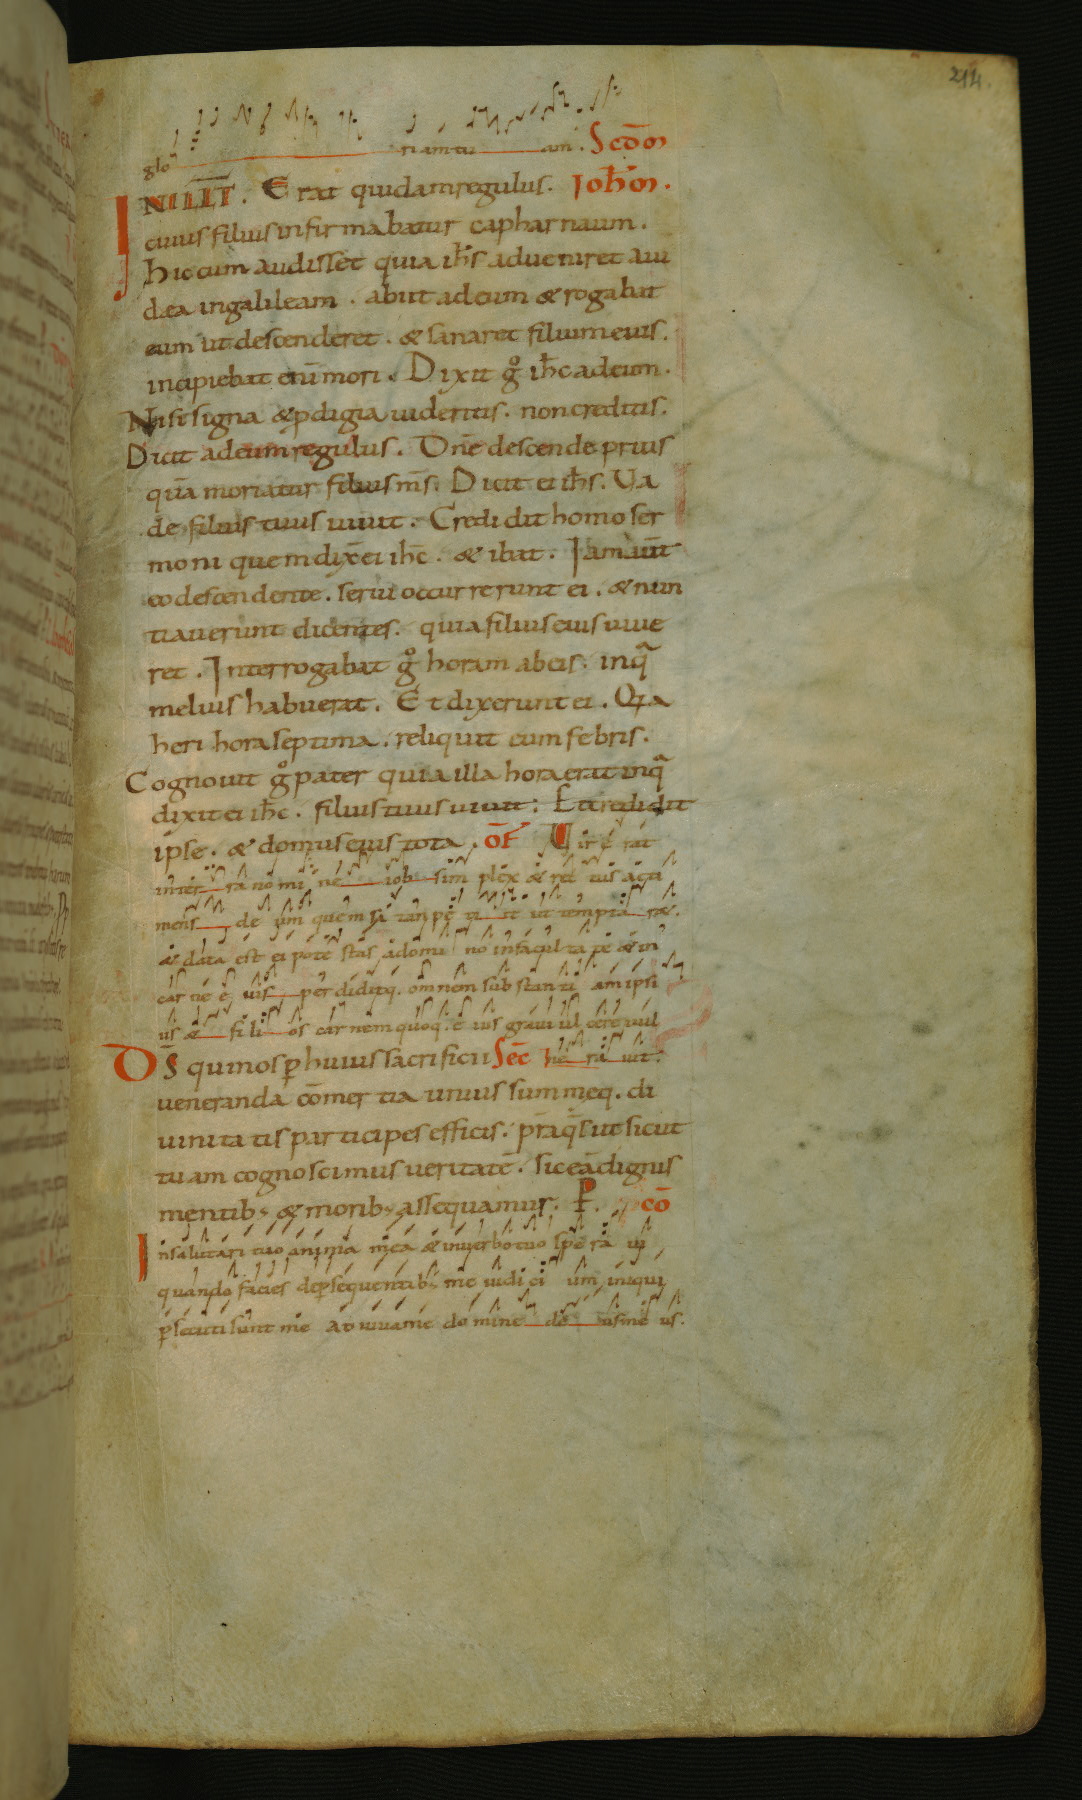 214.
glo riam tu am. Scdm
IN ILLT. Erat quidam regulus. Ioh̄m.
cuius filius infirmabatur capharnaum.
hic cum audisset quia ih̄s adueniret a iu
dæa in galileam. abiit ad eum & rogabat
eum ut descenderet. & sanaret filium eius.
incipiebat enī mori. Dixit g̊ ih̄c ad eum.
Nisi signa & pdigia uideritis. non creditis.
Dicit ad eum regulus. Dn̄e descende prius
quā moriatur filius m̄s. Dicit ei ih̄s. Ua
de filius tuus uiuit. Credidit homo ser
moni quem dix̄ ei ih̄c. & ibat. Iam aūt
eo descendente. serui occurrerunt ei. & nun
tiauerunt dicentes. quia filius eius uiue
ret. Interrogabat g̊ horam ab eis. in q̄
melius habuerat. Et dixerunt ei. Qa
heri hora septima. reliquit eum febris.
Cognouit g̊ pater quia illa hora erat in q̄
dixit ei ih̄c. filius tuus uiuit: Et credidit
ipse. & domus eius tota. of Uir erat
in ter ra nomi ne iob sim plex & rec tus ac ti
mens de um quem sa tan pe ti it ut temptar&.
& data est ei potestas a domino in facultate & in
carne eius perdiditq. omnem substanti am ipsi
us & fili os carnem quoq. eius graui ulcere uul
DS qui nos p huius sacrificii Sec ne ra uit.
ueneranda cōmertia unius summeq. di
uinitatis participes efficis. pra q̄s ut sicut
tuam cognoscimus ueritatē. sic eā dignis
mentib; & morib; assequamur. P. cō
In salutari tuo anima mea & in uerbo tuo spera ui
quando facies de psequentib; me iudici um iniqui
psecuti sunt me adiuua me domine de us me us.